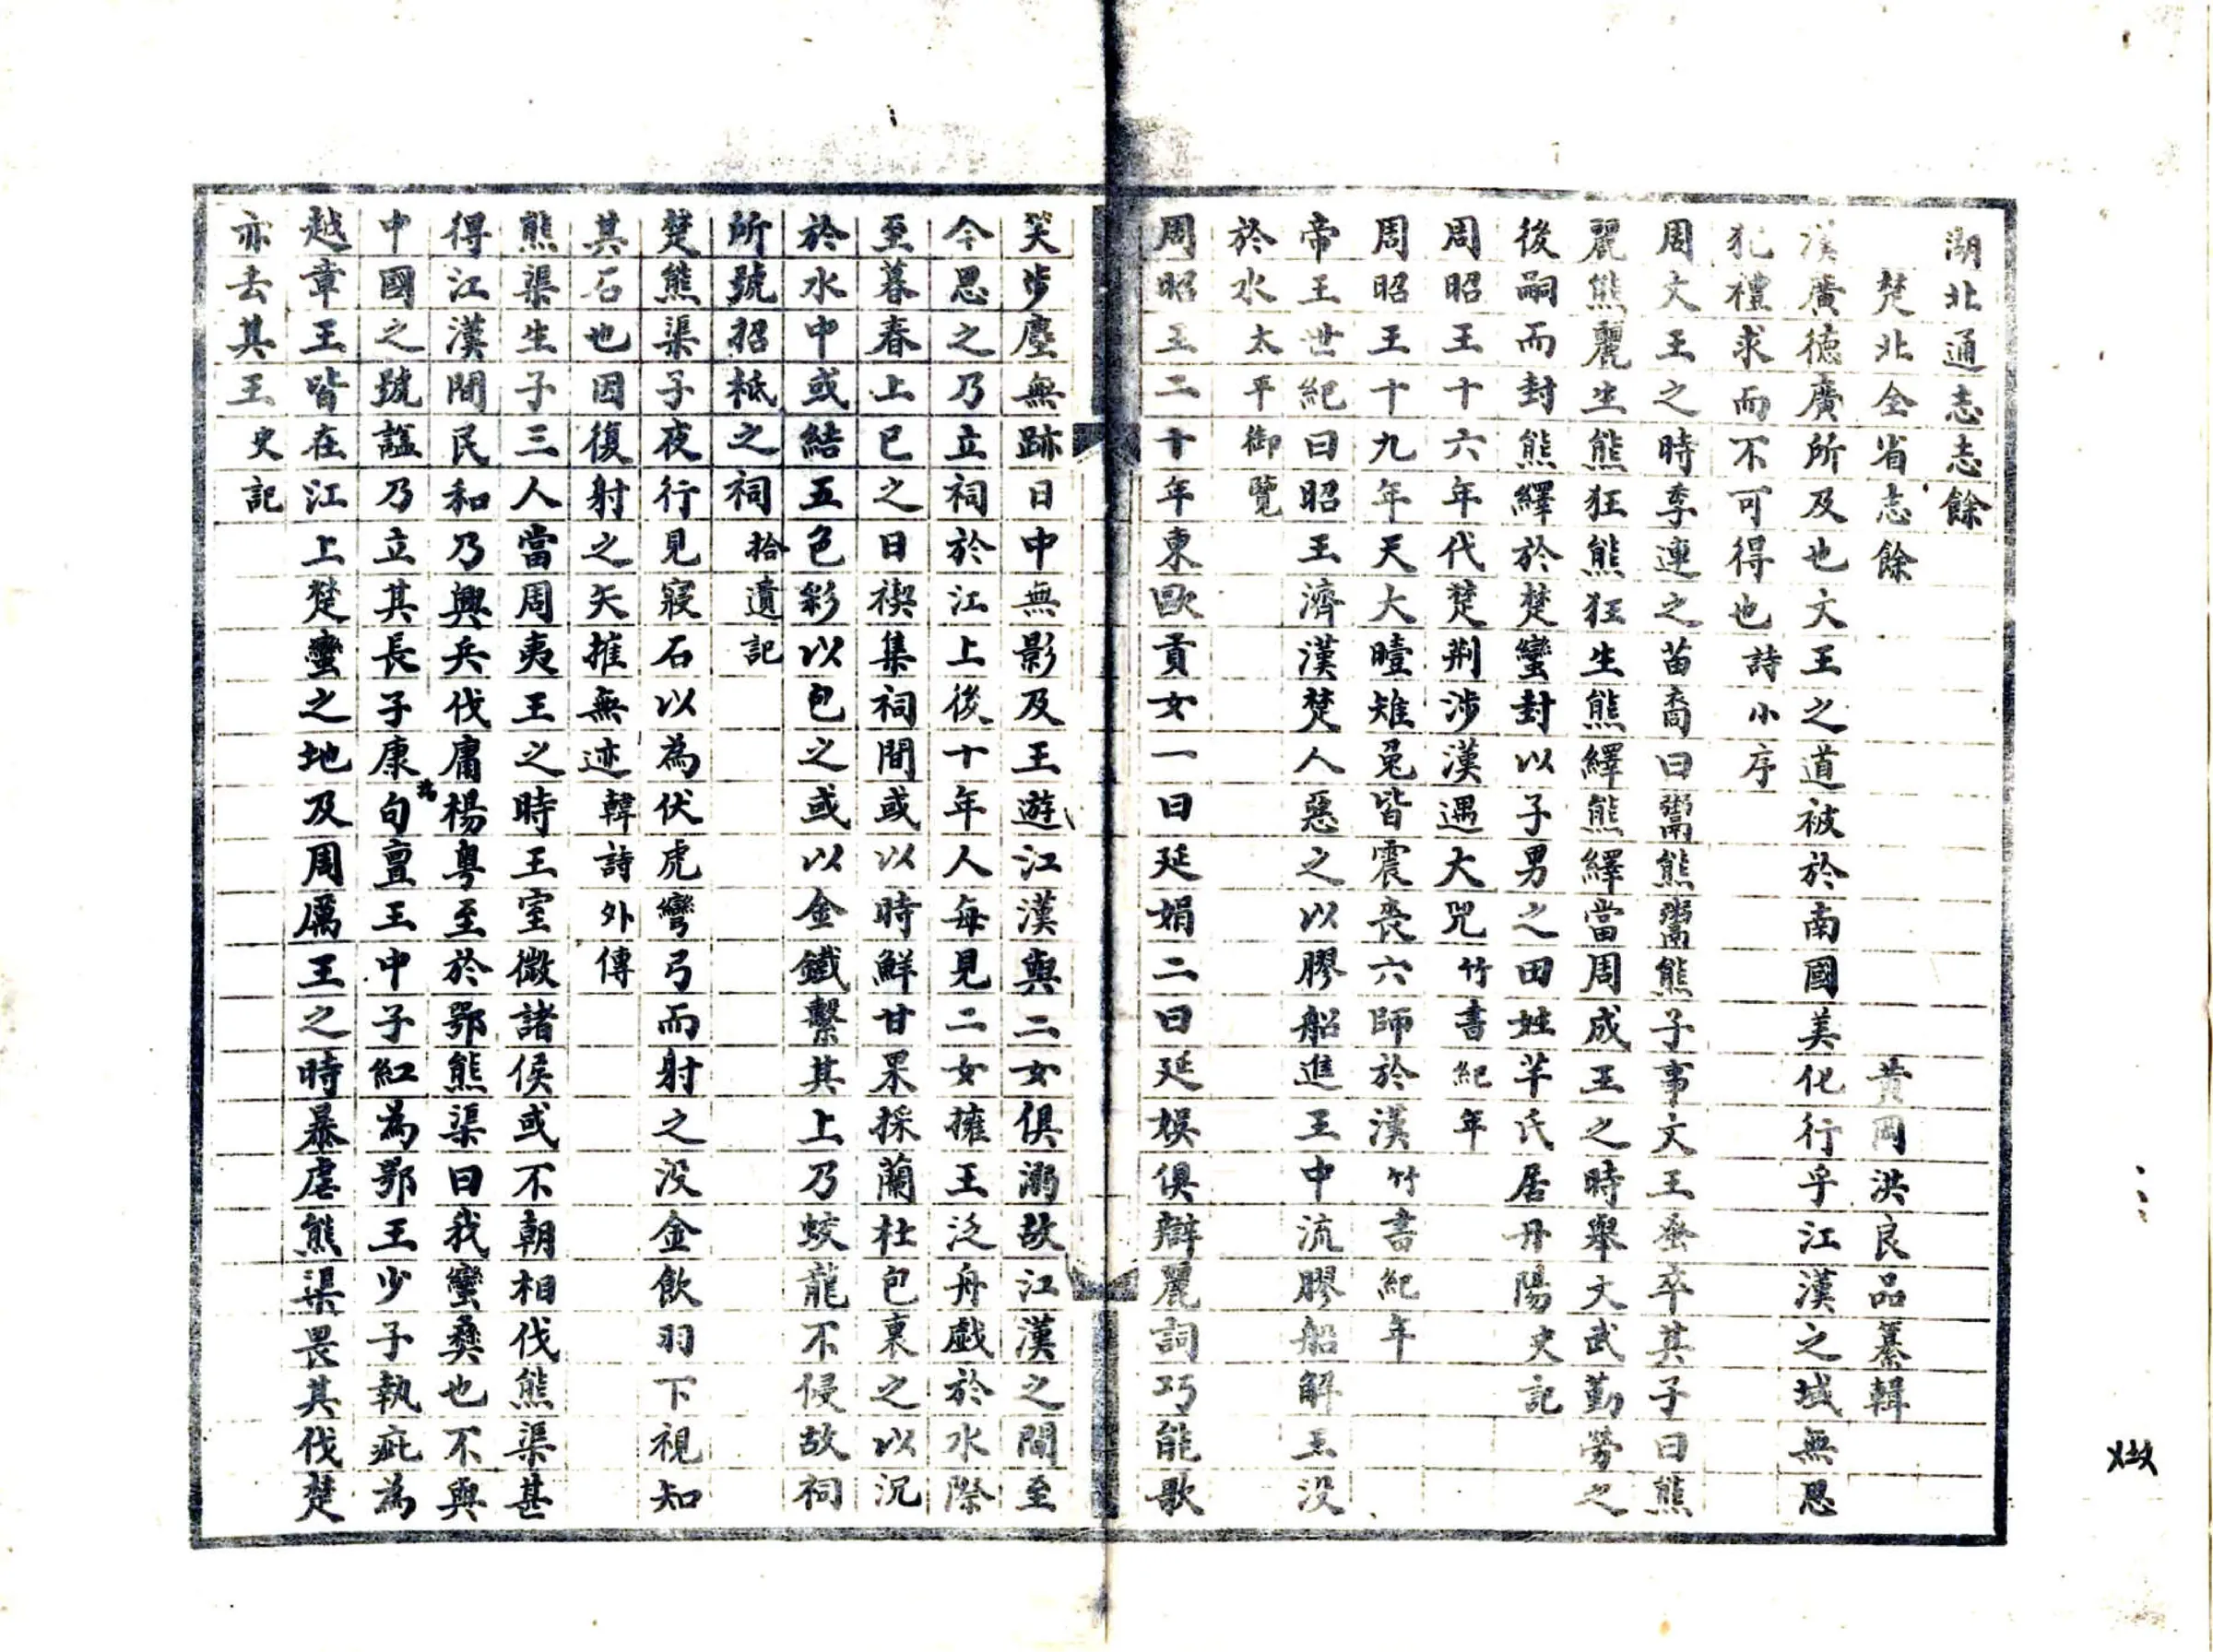 湖北通志志餘
楚北全省志餘　黄岡洪良品纂輯
漢廣德廣所及也文王之道被於南國美化行乎江漢之域無思
犯禮求而不可得也詩小序
周文王之時季連之苗裔曰鬻熊鬻熊子事文王蚤卒其子曰熊
麗熊麗生熊狂熊狂生熊繹熊繹當周成王之時舉文武勤勞之
後嗣而封熊繹於楚蠻封以子男之田姓羋氏居丹陽史記
周昭王十六年伐楚荆涉漢遇大兕竹書紀年
周昭王十九年天大曀雉兔皆震喪六師於漢竹書紀年
帝王世紀曰昭王濟漢楚人惡之以膠船進王中流膠船解王没
於水太平御覽
周昭王二十年東歐貢女一曰延娟二曰延娱俱辯麗詞巧能歌
笑步塵無跡日中無影及王遊江漢與二女俱溺故江漢之間至
今思之乃立祠於江上後十年人每見二女擁王泛舟戯於水際
至暮春上巳之日禊集祠間或以時鮮甘果採蘭杜包裹之以沉
於水中或結五色彩以包之或以金鐵繫其上乃蛟龍不侵故祠
所號招柢之祠拾遺記
楚熊渠子夜行見寢石以為伏虎彎弓而射之没金飲羽下視知
其石也因復射之矢摧無迹韓詩外傳
熊渠生子三人當周夷王之時王室微諸侯或不朝相伐熊渠甚
得江漢間民和乃興兵伐庸楊粤至於鄂熊渠曰我蠻彝也不與
中國之號諡乃立其長子康為句亶王中子紅為鄂王少子執疵為
越章王皆在江上楚蠻之地及周厲王之時暴虐熊渠畏其伐楚
亦去其王史記